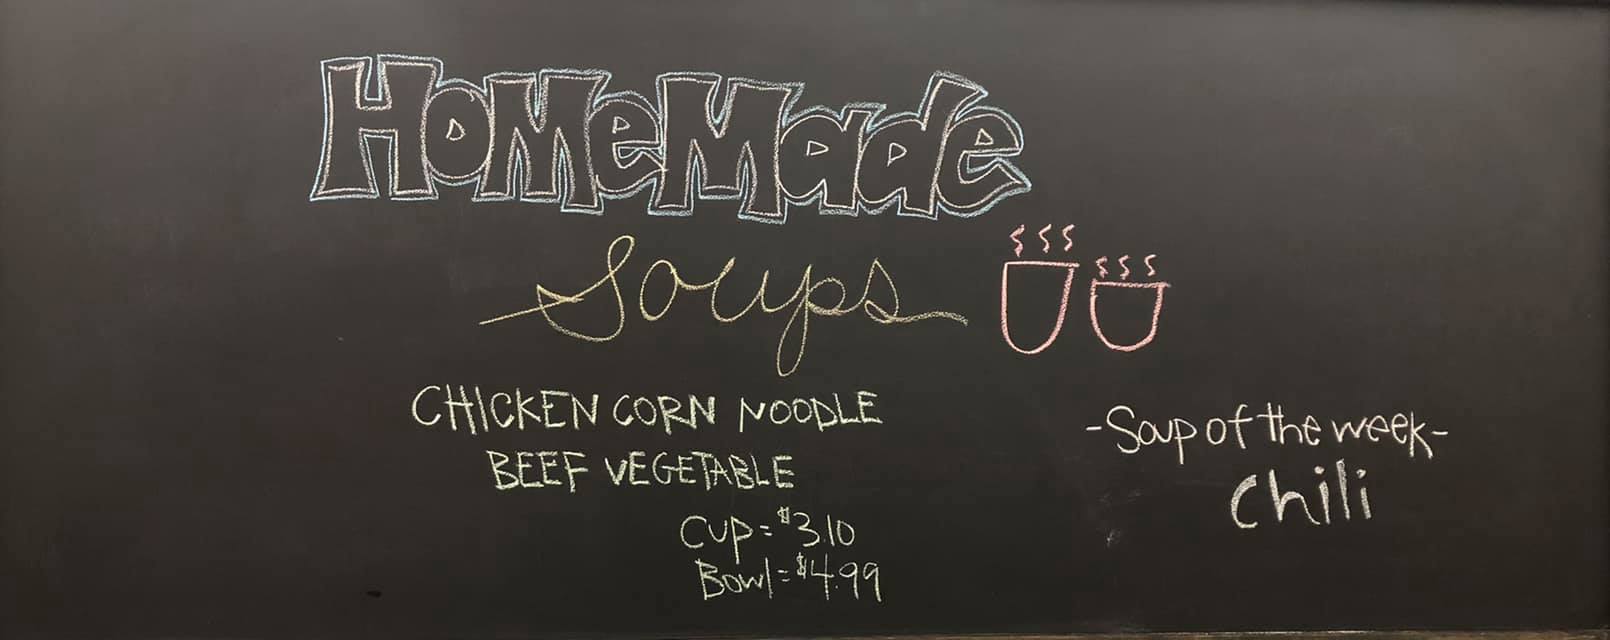 HoMeMade
Soups
CHICKEN CORN NOODLE
BEEF VEGETABLE
Cup = $3.10
Bowl = $4.99
-Soup of the week-
Chili